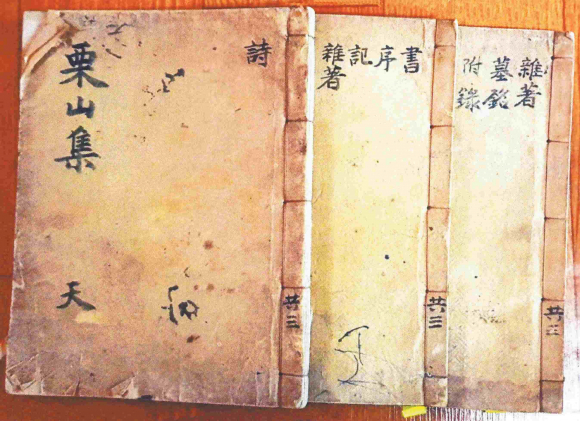 栗山集
天
詩
共三
書
序
記
雜著
共三
雜著
墓銘
附錄
共三